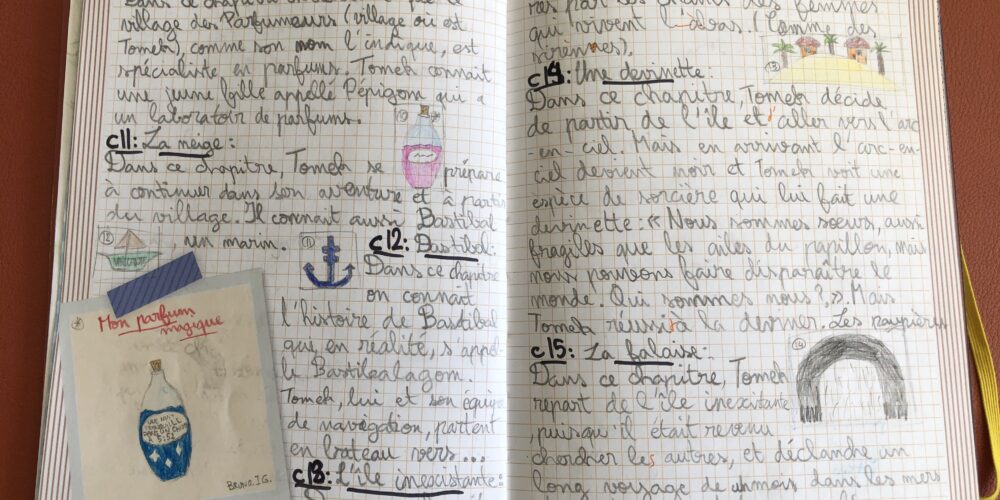 village des Parfumeurs (village où est
Tomek), comme son nom l'indique, est
spécialiste en parfums. Tomek connait
une jeune fille appellé Pépigom qui a
un laboratoir de parfums.
10
c11: La neige:
Dans ce chapitre, Tomek se prépare
à continuer dans son aventure et a partir
du village. Il connait aussi Bastibal
un marin.
12
11
c12: Bastibal:
Dans ce chapitre
on connait
l'histoire de Bastibal
qui, en réalité, s'appel-
le Bastibalagom.
Tomek, lui et son équipe
de navigation, partent
en brateau vers...
c13: L'île inexistante:
*
Mon parfum
magique
BRUNO.J.G.
res par les chants des femmes
qui vivent là-bas. (Comme des
sirènes).
13
c14: Une devinette
Dans ce chapitre, Tomek décide
de partir de l'île et aller vers l'arc
-en-ciel. Mais en arrivant l'arc-en-
ciel devient noir et Tomek voit une
espèce de sorcière qui lui fait une
devinette: « Nous sommes sœurs, aussi
fragiles que les ailes du papillon, mais
nous pouvons faire disparaître le
monde. Qui sommes nous?,». Mais
Tomek réussi à la deviner. Les paupières
c15: La falaise:
14
Dans ce chapitre, Tomek
repart de l'île inexistante
, puisqu'il était revenu
cherdrer les autres, et déclandre un
long voyage de un mois dans les mers